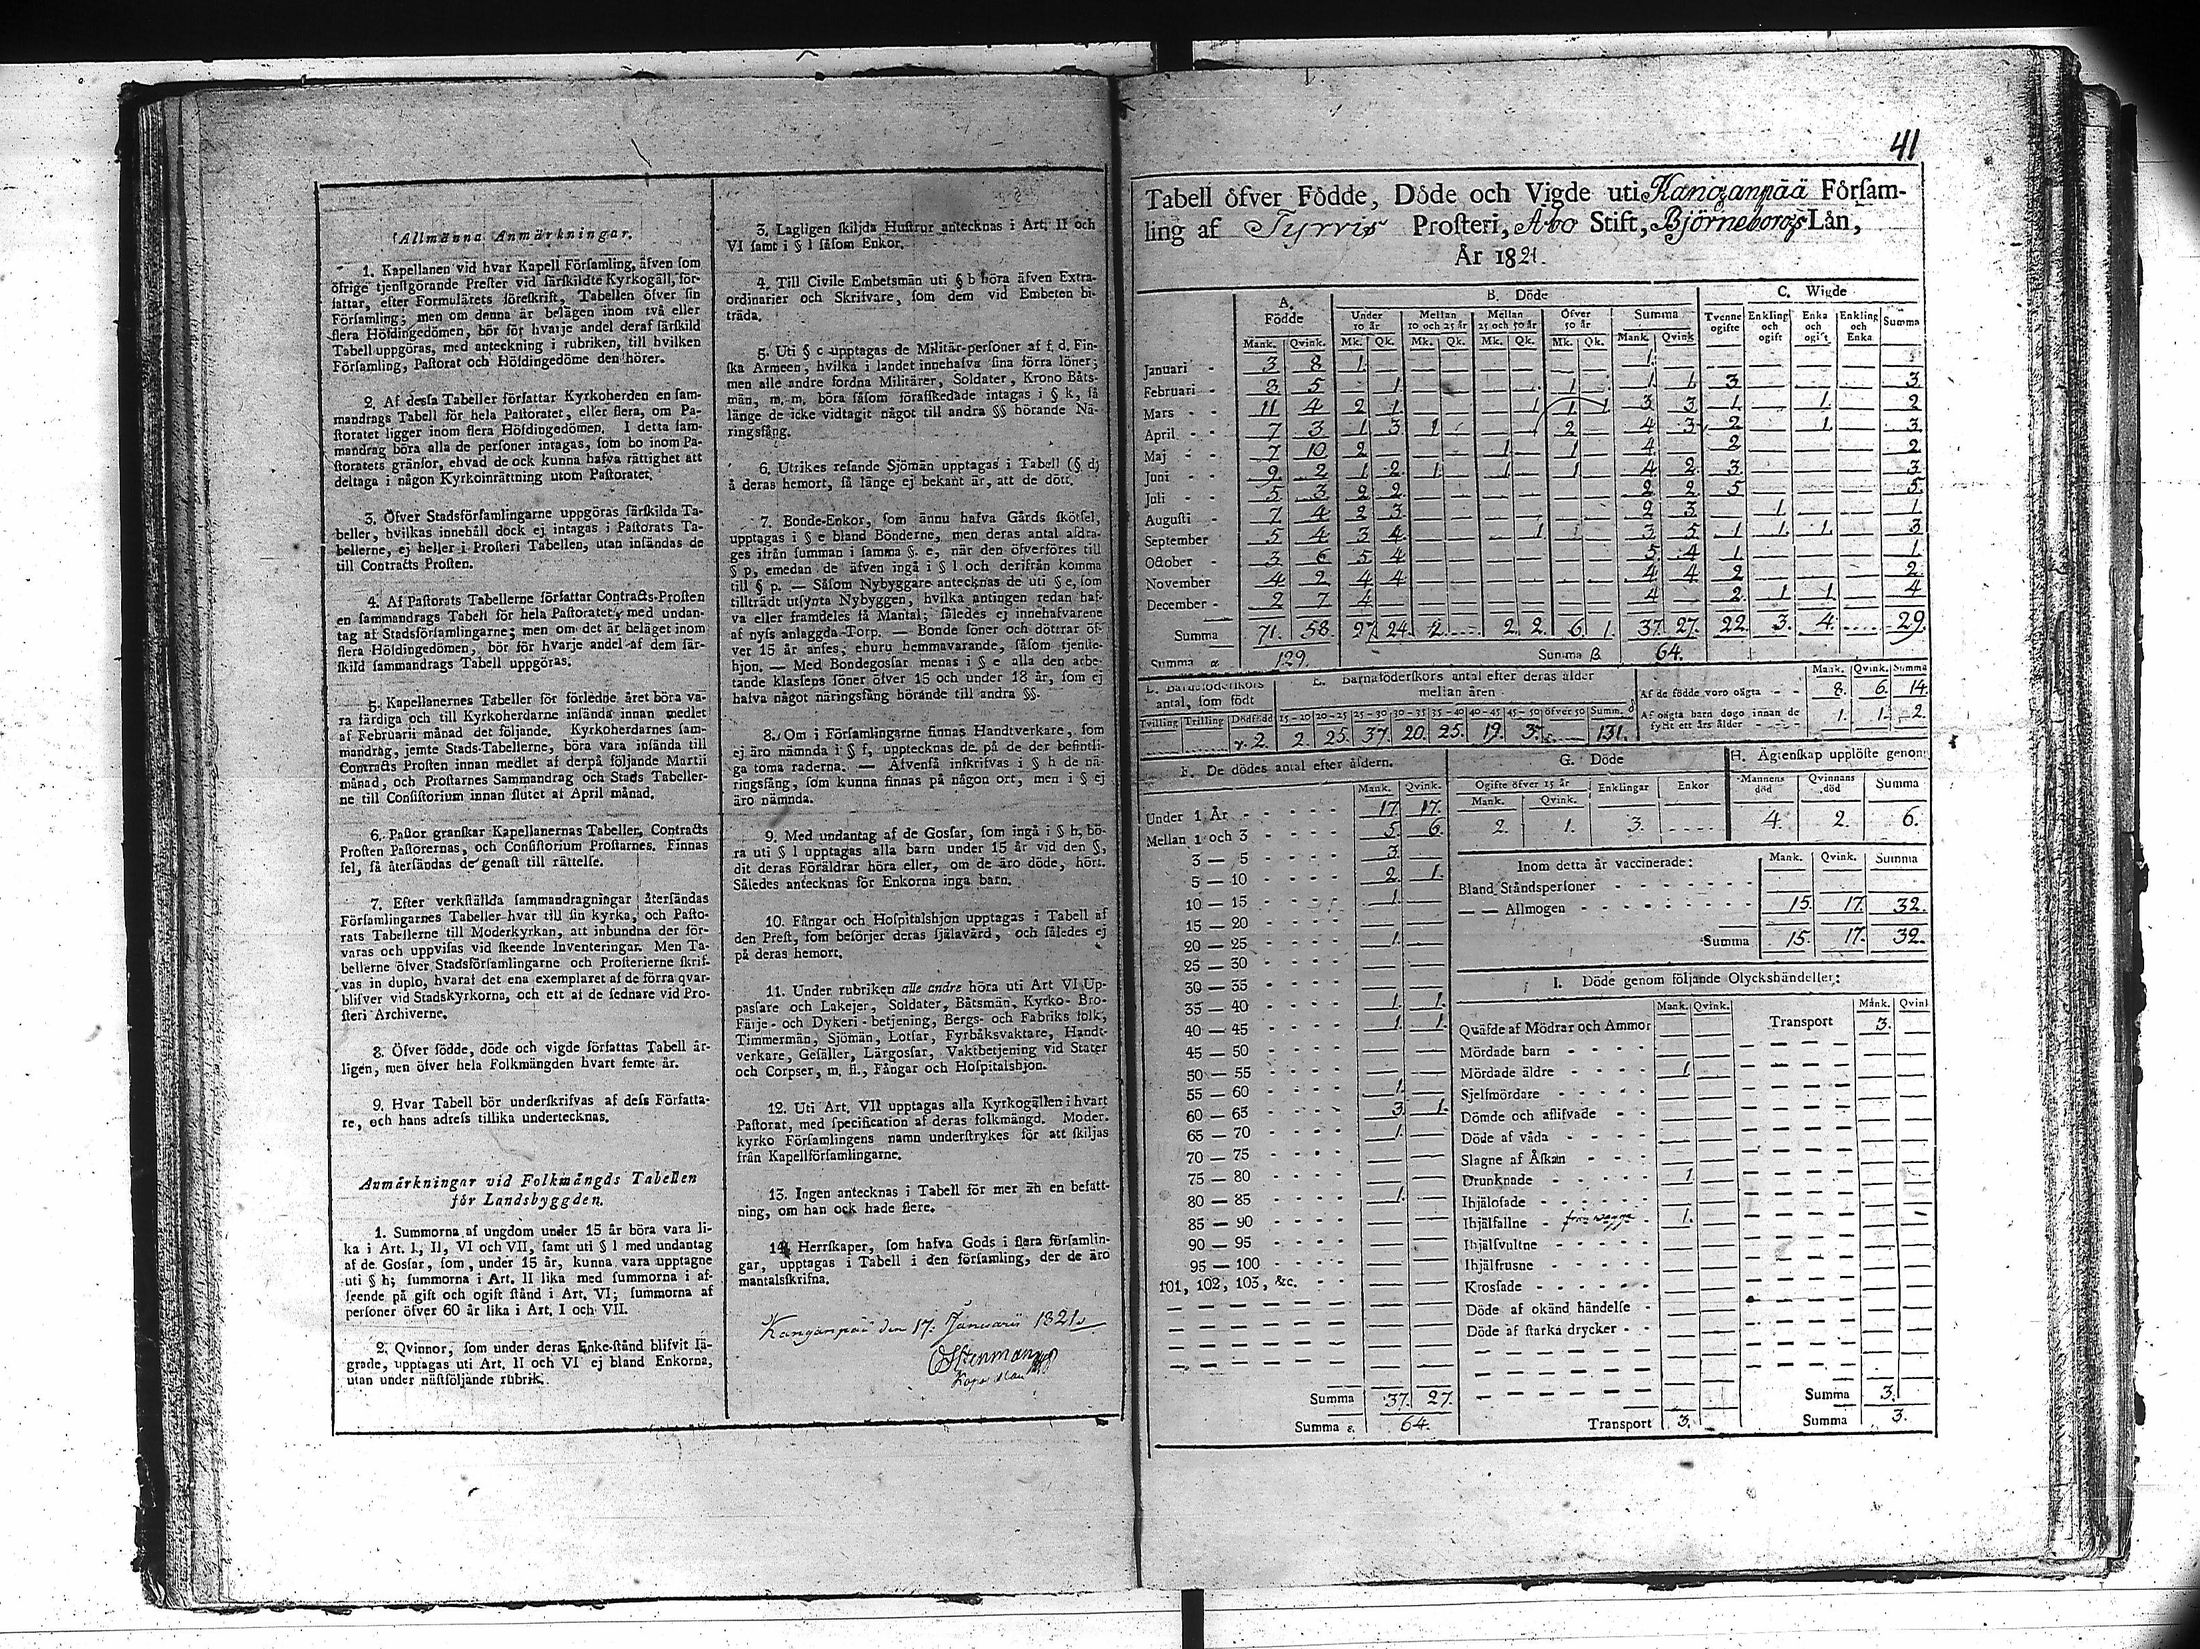 Allmänna Anmärkningar.
1. Kapellanen vid hvar Kapell Församling, äfven som
öfrige tjenstgörande Prester vid särskildte Kyrkogäll, för-
fattar, efter Formulärets föreskrift, Tabellen öfver sin
Församling; men om denna är belägen inom två eller
flera Höfdingedömen, bör för hvarje andel deraf särskild
Tabell uppgöras, med anteckning i rubriken, till hvilken
Församling, Pastorat och Höfdingedöme den hörer.
2. Af dessa Tabeller författar Kyrkoherden en sam-
mandrags Tabell för hela Pastoratet, eller flera, om Pa-
storatet ligger inom flera Höfdingedömen. I detta sam-
mandrag böra alla de personer intagas, som bo inom Pa-
storatets gränsor, ehvad de ock kunna hafva rättighet att
deltaga i någon Kyrkoinrättning utom Pastoratet.
3. Öfver Stadsförsamlingarne uppgöras särskilda Ta-
beller, hvilkas innehåll dock ej intagas i Pastorats Ta-
bellerne, ej heller i Prosteri Tabellen, utan insändas de
till Contracts Prosten.
4. Af Pastorats Tabellerne författar Contracts-Prosten
en sammandrags Tabell för hela Pastoratet, med undan-
tag af Stadsförsamlingarne; men om det är beläget inom
flera Höfdingedömen, bör för hvarje andel af dem sär-
skild sammandrags Tabell uppgöras.
5. Kapellanernes Tabeller för förledne året böra va-
ra färdiga och till Kyrkoherdarne insända innan medlet
af Februarii månad det följande. Kyrkoherdarnes sam-
mandrag, jemte Stads-Tabellerne, böra vara insända till
Contracts Prosten innan medlet af derpå följande Martii
månad, och Prostarnes Sammandrag och Stads Tabeller-
ne till Consistorium innan slutet af April månad.
6. Pastor granskar Kapellanernas Tabeller, Contracts
Prosten Pastorernas, och Consistorium Prostarnes. Finnas
fel, så återsändas de genast till rättelse.
7. Efter verkställda sammandragningar återsändas
Församlingarnes Tabeller hvar till sin kyrka, och Pasto-
rats Tabellerne till Moderkyrkan, att inbundna der för-
varas och uppvisas vid skeende Inventeringar. Men Ta-
bellerne öfver Stadsförsamlingarne och Prosterierne skrif-
vas in duplo, hvaraf det ena exemplaret af de förra qvar-
blifver vid Stadskyrkorna, och ett af de sednare vid Pro-
steri Archiverne.
8. Öfver födde, döde och vigde författas Tabell år-
ligen, men öfver hela Folkmängden hvart femte år.
9. Hvar Tabell bör underskrifvas af dess Författa-
re, och hans adress tillika undertecknas.
Anmärkningar vid Folkmängds Tabellen
för Landsbyggden.
1. Summorna af ungdom under 15 år böra vara li-
ka i Art. I, II, VI och VII, samt uti § l med undantag
af de Gossar, som, under 15 år, kunna vara upptagne
uti § h; summorna i Art. II lika med summorna i af-
seende på gift och ogift stånd i Art. VI; summorna af
personer öfver 60 år lika i Art. I och VII.
2. Qvinnor, som under deras Enke-stånd blifvit lä-
grade, upptagas uti Art. II och VI ej bland Enkorna,
utan under nästföljande rubrik.
3. Lagligen skiljda Hustrur antecknas i Art. II och
VI samt i § l såsom Enkor.
4. Till Civile Embetsmän uti § b höra äfven Extra-
ordinarier och Skrifvare, som dem vid Embeten bi-
träda.
5. Uti § c upptagas de Militär-personer af f. d. Fin-
ska Armeen, hvilka i landet innehafva sina förra löner;
men alle andre fordna Militärer, Soldater, Krono Båts-
män, m. m. böra såsom förafskedade intagas i § k, så
länge de icke vidtagit något till andra §§ hörande Nä-
ringsfång.
6. Utrikes resande Sjömän upptagas i Tabell (§ d)
å deras hemort, så länge ej bekant är, att de dött.
7. Bonde-Enkor, som ännu hafva Gårds skötsel,
upptagas i § e bland Bönderne, men deras antal afdra-
ges ifrån summan i samma §. e, när den öfverföres till
§ p, emedan de äfven ingå i § l och derifrån komma
till § p. — Såsom Nybyggare antecknas de uti § e, som
tillträdt utsynta Nybyggen, hvilka antingen redan haf-
va eller framdeles få Mantal; således ej innehafvarene
af nyss anlaggda Torp. — Bonde söner och döttrar öf-
ver 15 år anses, ehuru hemmavarande, såsom tjenste-
hjon. — Med Bondegossar menas i § e alla den arbe-
tande klassens söner öfver 15 och under 18 år, som ej
hafva något näringsfång hörande till andra §§.
8. Om i Församlingarne finnas Handtverkare, som
ej äro nämnda i § f, upptecknas de på de der befintli-
ga toma raderna. — Äfvenså inskrifvas i § h de nä-
ringsfång, som kunna finnas på någon ort, men i § ej
äro nämnda.
9. Med undantag af de Gossar, som ingå i § h, bö-
ra uti § l upptagas alla barn under 15 år vid den §,
dit deras Föräldrar höra eller, om de äro döde, hört.
Således antecknas för Enkorna inga barn.
10. Fångar och Hospitalshjon upptagas i Tabell af
den Prest, som besörjer deras själavård, och således ej
på deras hemort.
11. Under rubriken alle andre höra uti Art VI Up-
passare och Lakejer, Soldater, Båtsmän, Kyrko- Bro-
Färje- och Dykeri-betjening, Bergs- och Fabriks folk,
Timmermän, Sjömän, Lotsar, Fyrbåksvaktare, Handt-
verkare, Gesäller, Lärgossar, Vaktbetjening vid Stater
och Corpser, m. fl., Fångar och Hospitalshjon.
12. Uti Art. VII upptagas alla Kyrkogällen i hvart
Pastorat, med specification af deras folkmängd. Moder-
kyrko Församlingens namn understrykes för att skiljas
från Kapellförsamlingarne.
13. Ingen antecknas i Tabell för mer än en befatt-
ning, om han ock hade flere.
14. Herrskaper, som hafva Gods i flera församlin-
gar, upptagas i Tabell i den församling, der de äro
mantalsskrifna.
Kanganpää den 17. Januarii 1821.
41
Tabell öfver Födde, Döde och Vigde uti Kanganpää Försam-
ling af Tyrvis Prosteri, Åbo Stift, Björneborgs Län,
År 1821.
A. Födde B. Döde C. Wigde
Under 10 år Mellan 10 och 25 år Mellan 25 och 50 år Öfver 50 år Summa Tvenne ogifte Enkling och ogift Enka och ogift Enkling och Enka Summa
Mank. Qvink. Mk. Qk. Mk. Qk. Mk. Qk. Mk. Qk. Mank. Qvink
Januari 3 8 1 1
Februari 3 5 1 1 1 1 3 3
Mars 11 4 2 1 1 1 1 3 3 1 1 2
April 7 3 1 3 1 1 2 4 3 2 1 3
Maj 7 10 2 1 1 4 2 2
Juni 9 2 1 2 1 1 1 4 2 3 3
Juli 5 3 2 2 2 2 5 5
Augusti 7 4 2 3 2 3 1 1
September 5 4 3 4 1 3 5 1 1 1 3
October 3 6 5 4 5 4 1 1
November 4 2 4 4 4 4 2 2
December 2 7 4 4 2 1 1 4
Summa 71. 58. 27. 24. 2. 2. 2. 6. 1. 37. 27. 22. 3. 4. 29.
Summa α 129. Summa β 64.
antal, som födt
E. Barnaföderskors antal efter deras ålder
mellan åren
Tvilling Trilling Dödfödd 15—20 20—25 25—30 30—35 35—40 40—45 45—50 öfver 50 Summ. δ
2. 2. 25. 37. 20. 25. 19. 3. 131.
Mank. Qvink. Summa
Af de födde voro oägta 8. 6. 14.
Af oägta barn dogo innan de
fyllt ett års ålder 1. 1. 2.
F. De dödes antal efter åldern.
Mank. Qvink.
Under 1 År 17 17.
Mellan 1 och 3 5 6.
3 — 5 3.
5 — 10 2. 1.
10 — 15 1.
15 — 20
20 — 25 1.
25 — 30
30 — 35
35 — 40 1. 1.
40 — 45 1. 1.
45 — 50
50 — 55
55 — 60 1.
60 — 65 3. 1.
65 — 70 1.
70 — 75
75 — 80
80 — 85 1.
85 — 90
90 — 95
95 — 100
101, 102, 103, &c.
Summa 37. 27.
Summa ε. 64.
G. Döde
Ogifte öfver 15 år Enklingar Enkor
Mank. Qvink.
2. 1. 3.
H. Ägtenskap upplöste genom
Mannens död Qvinnans död Summa
4. 2. 6.
Inom detta år vaccinerade: Mank. Qvink. Summa
Bland Ståndspersoner
— — Allmogen 15. 17. 32.
Summa 15. 17. 32.
I. Döde genom följande Olyckshändelser:
Mank. Qvink. Mank. Qvink
Qväfde af Mödrar och Ammor Transport 3.
Mördade barn
Mördade äldre 1
Sjelfmördare
Dömde och aflifvade
Döde af våda
Slagne af Åskan
Drunknade 1
Ihjälosade
Ihjälfallne 1.
Ihjälsvultne
Ihjälfrusne
Krossade
Döde af okänd händelse
Döde af starka drycker
Summa 3.
Transport 3. Summa 3.